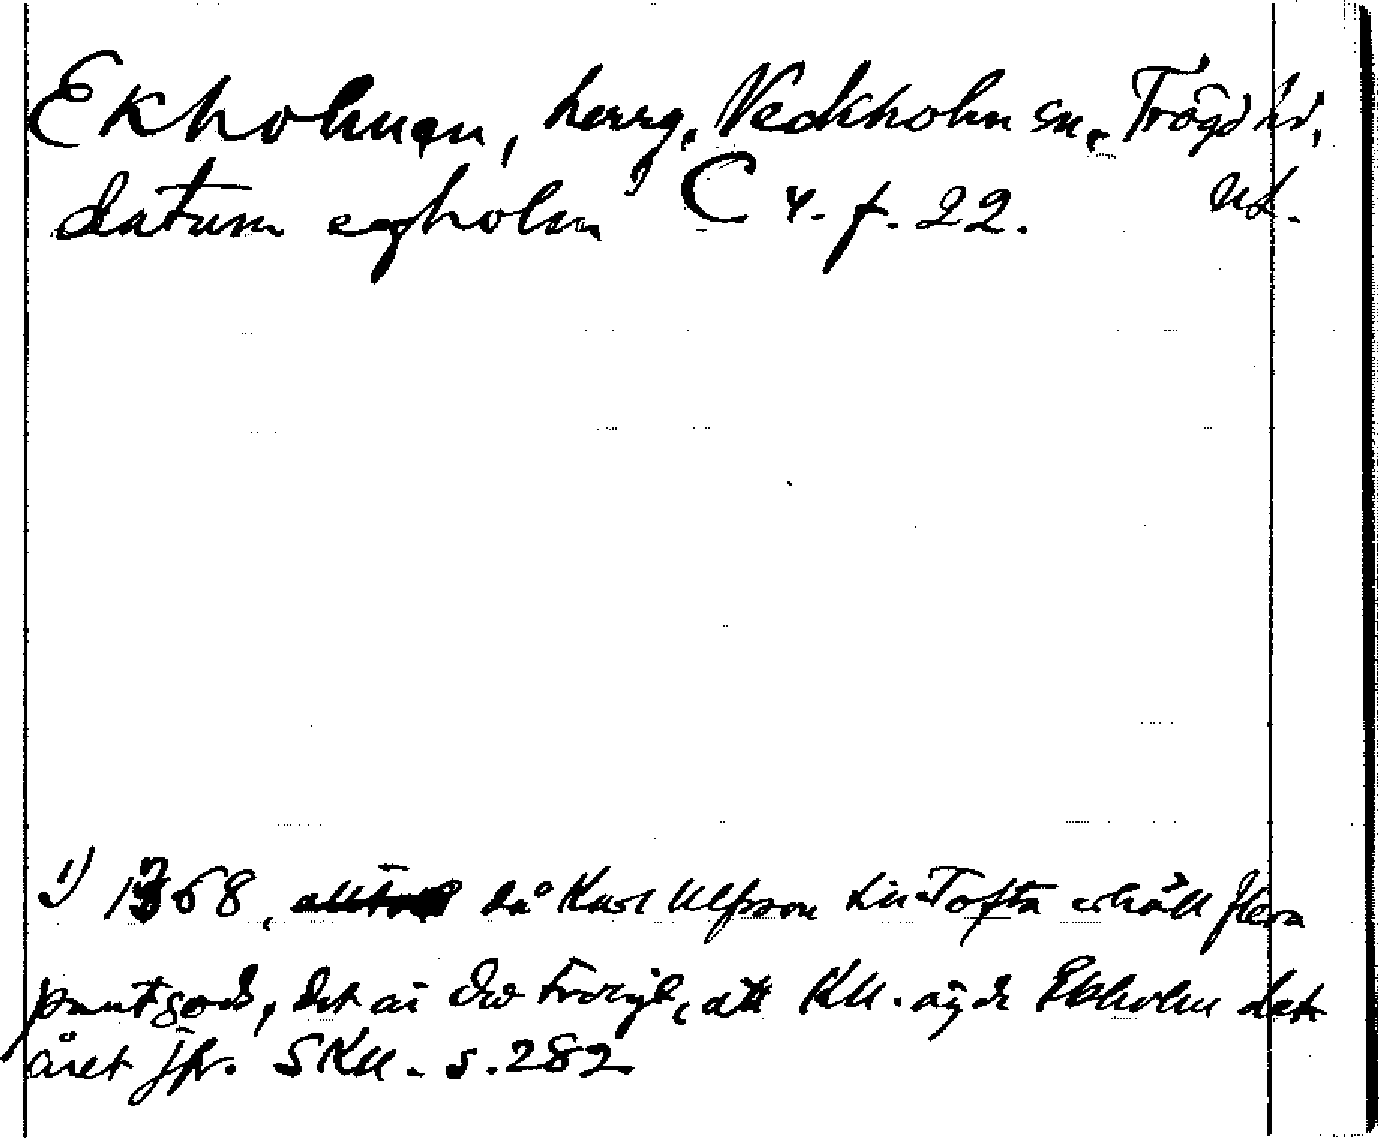 Ekholmen, herrg. Veckholm sn, Trögd hd,
datum egholm 1) C 4. f. 22. Upl.
1) 1368, då Karl Ulfsson till Tofta erhöll flera
pantgods, det är dock troligt, att KU. ägde Ekholm detta
året jfr. SKU. s. 282